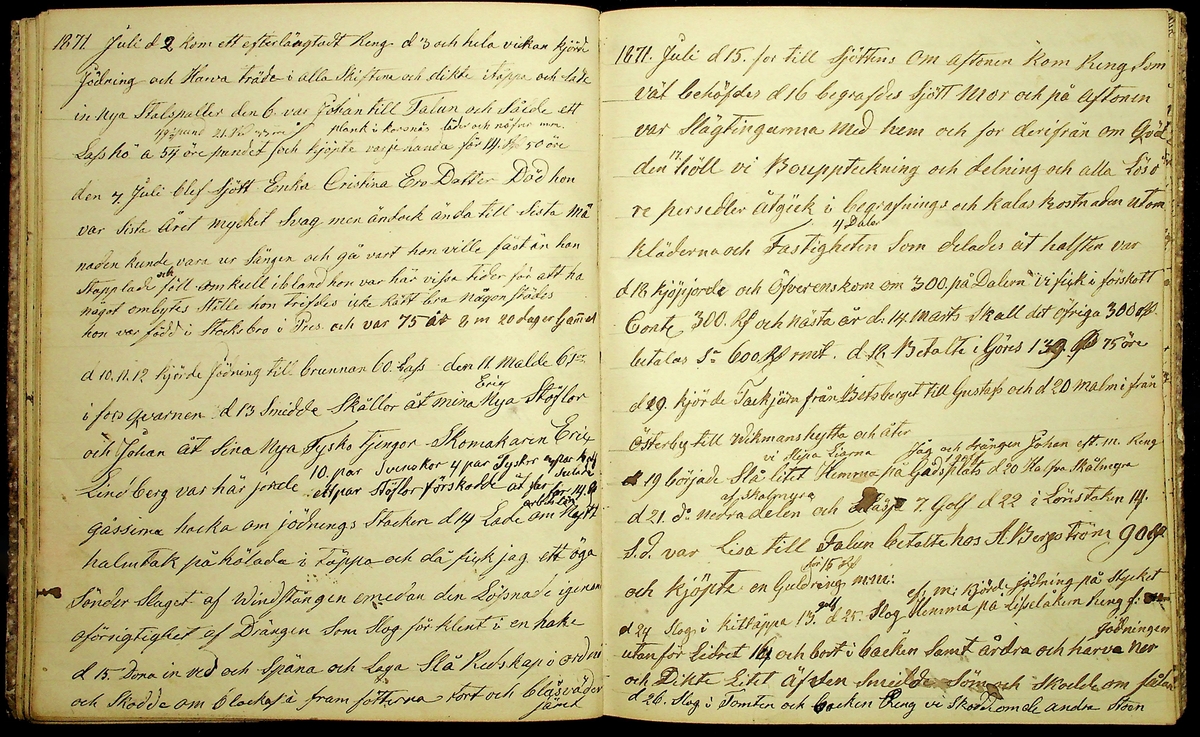 1871 Juli d 2 kom ett efterlängtadt Reng d 3 och hela vickan kjörde
Jödning och Harva träde i alla Skiftena och dikte i täppa och lade
in nya Stalspalter den 6. var Johan till Falun och sålde ett
49 pund plank i korsnäs läder och näfrar mm.
Lass hö a 54 öre pundet och kjöpte för 14. Rd 50 öre
den 7 Juli blef Sjött Enka Cristina Ers Datter Död hon
var Sista Året mycket Svag men ändock ända till Sista må
naden kunde vara ur Sängen och gå vart hon ville fast än hon
Stapplade och föll omkull ibland hon var här vissa tider för att ha
något ombytes Ställe hon trifdes icke Rätt bra någon städes
hon var född i Stocksbro i Pres. och var 75 år 8 m 20 dagar gammal
d 10. 11. 12 kjörde Jödning till brunnan 60. Lass den 11. Malde
Eric
i fors qvarnen d 13 Smedde Skållor åt mina Nya Stöflor
och Johan åt Sina Nya Tysko tjengor Skomakaren Eric
10. par Svenskor 4 par Tyskor
Lindberg var här jorde ett par Stöflor förskodde åt
arbetslön
gässerna hacka om jödnings Stacken d 14 Lade om Nytt
halmtak på hölada i Täppa och då fick jag ett öga
Sönder Slaget af Windstången emedan den Lossnade igenom
oförsigtighet af Drängen Som Slog för klent i en hake
d 15. Dona in ved och Späna och Laga Slå Redskap i ordni
och Skodde om blacka i fram fötterna tort och blåsväder
samt
1871. Juli d 15. for till Sjöttens Om aftonen kom Reng Som
väl behöfdes d 16 begrafdes Sjött Mor och på Aftonen
var Slägtingarna Med hem och for derifrån om Qväl
den 17. höll vi Bouppteckning och delning och alla Lösö
re persedler åtgick i begrafnings och kalas kostnaden utom
4 Daler
kläderna och Fastigheten Som delades åt halften var
d 18 kjöpjorde och Öfverenskom om 300. på Dalern vi fick i förskott
Conte 300. Rd och nästa år d. 14. Marts Skall det öfriga 300 Rd.
betalas S:a 600. Rd rmt. d 18. Betalte i Göres 139 Rd 75 öre
d 19. kjörde Tackjärn från Bitsberget till Gustafs och d 20 malm ifrån
Österby till Wikmanshytta och åter
vi slipa Liarna Jag och drängen Johan eft. m. Reng
d 19 började Slå litet Hemma på Gådsplats d 20 Halfva Skålmyra
af skalmyra
d 21. d:o Nedra delen och 7. Golf d 22 i Lönstaken 14.
S. d. var Lisa till Falun betalte hos A. Bergström 90 Rd
för 15 Rd
och kjöpte en Guldring m.m:
ef. m: kjörde jödning på Stycket
d 24 Slog i kittäppa 13. golf d 25. Slog Hemma på Lisselåkern Reng
Jödningen
utan för Lidret 14 och bort i backen Samt årdra och harva ner
och Dikte Litet Äfven Smedde Söm och Skodde om fålan
d 26. Slog i Tomten och backen Reng vi Skodde om de andra Stoen